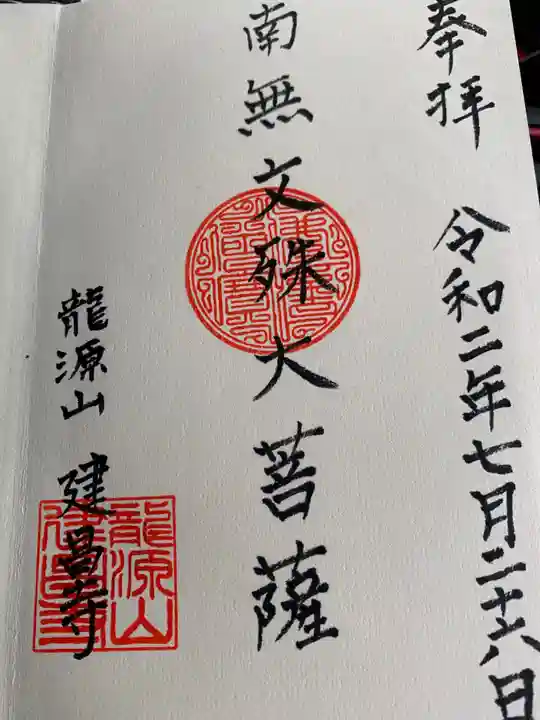 奉拝 令和二年七月二十六日
南無文殊大菩薩
龍源山 建昌寺
龍源山建昌寺